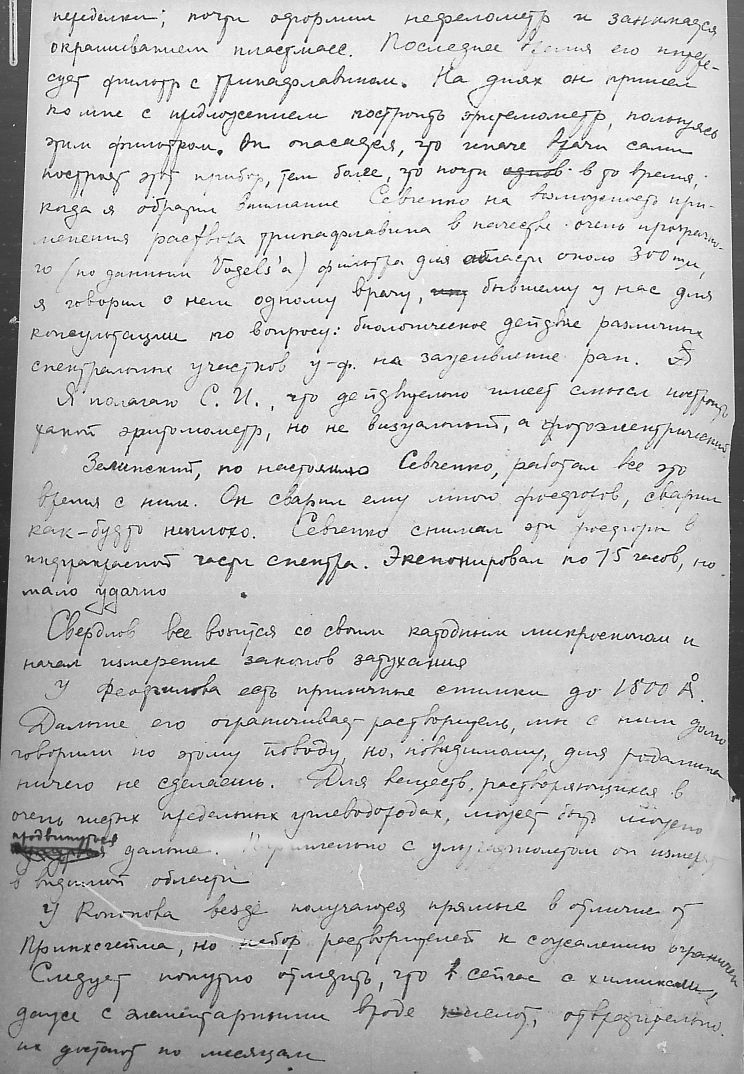 переделки; почти оформил нефелометр и занимается
окрашиванием пластмасс. Последнее время его интере-
сует фильтр с трипафлавином. На днях он пришел
ко мне с предложением построить эритемометр, пользуясь
этим фильтром. Он опасается, что иначе врачи сами
построят этот прибор, тем более, что почти в то время,
когда я обратил внимание Севченко на возможность при-
менения раствора трипафлавина в качестве очень прозрачно-
го (по данным Vogels'а) фильтра для области около 300 mμ,
я говорил о нем одному врачу, бывшему у нас для
консультации по вопросу: биологическое действие различных
спектральных участков у-ф. на заживление ран. Я
Я полагаю С. И., что действительно имеет смысл построить
такой эритемометр, но не визуальный, а фотоэлектрический
Зелинский, по настоянию Севченко, работал все это
время с ним. Он сварил ему много фосфоров, сварил
как-будто неплохо. Севченко снимал эти фосфоры в
инфракрасной части спектра. Экспонировал по 15 часов, но
мало удачно
Свердлов все возится со своим катодным микроскопом и
начал измерение законов затухания
У Феофилова есть приличные снимки до 1800 Å.
Дальше его ограничивает растворитель, мы с ним долго
говорили по этому поводу, но, повидимому, для родамина
ничего не сделаешь. Для веществ, растворяющихся в
очень чистых предельных углеводородах, может быть можно
продвинуться дальше. Параллельно с ультрафиолетом он измеряет
в видимой области
У Кононова везде получаются прямые в отличие от
Принхсгейма, но набор растворителей к сожалению ограничен
Следует попутно отметить, что сейчас с химикалиями,
даже с элементарными вроде кислот, отвратительно.
их достают по месяцам